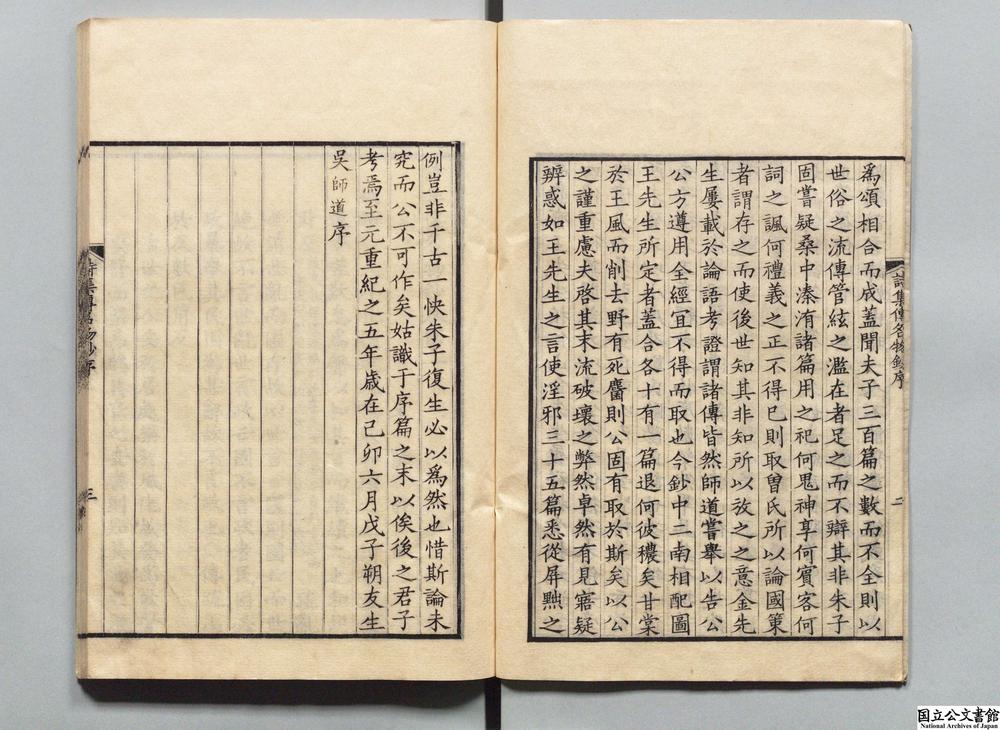 詩集傳名物鈔序
二
爲頌相合而成蓋聞夫子三百篇之數而不全則以
世俗之流傳管絃之濫在者足之而不辯其非朱子
固嘗疑桑中溱洧諸篇用之祀何鬼神享何賓客何
詞之諷何禮義之正不得已則取曽氏所以論國策
者謂存之而使後世知其非知所以放之之意金先
生屢載於論語考證謂諸傳皆然師道嘗舉以告公
公方遵用全經冝不得而取也今鈔中二南相配圖
王先生所定者蓋合各十有一篇退何彼穠矣甘棠
於王風而削去野有死麕則公固有取於斯矣以公
之謹重慮夫啓其末流破壞之弊然卓然有見寤疑
辨惑如王先生之言使淫邪三十五篇悉從屏黜之
例豈非千古一快朱子復生必以爲然也惜斯論未
究而公不可作矣姑識于序篇之末以俟後之君子
考焉至元重紀之五年歲在己卯六月戊子朔友生
吳師道序
詩集傳名物鈔序
三
国立公文書館
National Archives of Japan